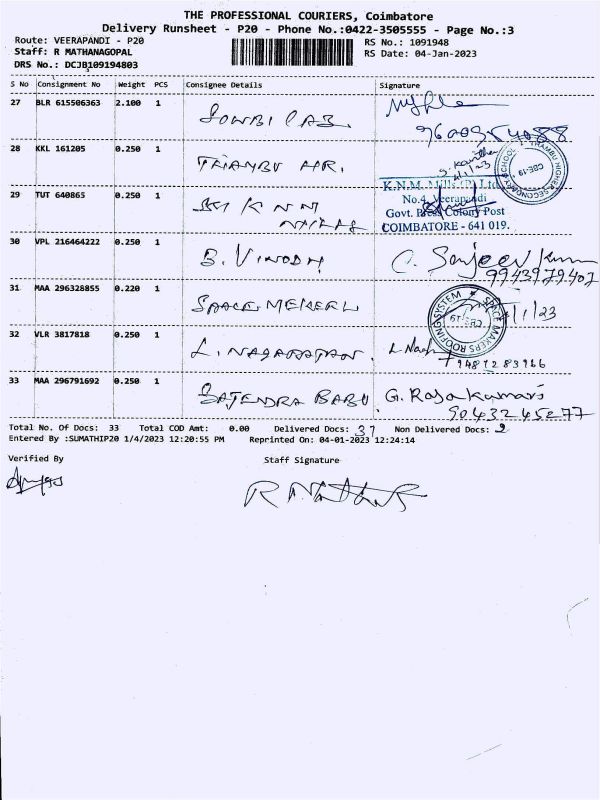 THE PROFESSIONAL COURIERS, Coimbatore
Delivery Runsheet - P20 - Phone No.:0422-3505555 - Page No.:3
Route: VEERAPANDI - P20
RS No.: 1091948
Staff: R MATHANAGOPAL
RS Date: 04-Jan-2023
DRS No.: DCJB109194803
S No Consignment No Weight PCS Consignee Details Signature
27 BLR 615506363 2.100 1
28 KKL 161205 0.250 1
S. Kavitha
4/1/23
THAMBU HIGHER SECONDARY SCHOOL CBE-19
29 TUT 640865 0.250 1 Sri K N M
K.N.M. Mills (P) Ltd
No.4, Veerapandi
Govt. Press Colony Post
COIMBATORE - 641 019.
30 VPL 216464222 0.250 1 B. VINODH C. Sanjeev Kumar
9943979407
31 MAA 296328855 0.220 1
SPACE MAKERS ROOFING SYSTEM CBE-19
/1/23
32 VLR 3817818 0.250 1 L. NAGARATHAN.
9487283966
33 MAA 296791692 0.250 1 RAJENDRA BABU G. Rajakumari
9043245277
Total No. Of Docs: 33 Total COD Amt: 0.00 Delivered Docs: 31 Non Delivered Docs: 2
Entered By :SUMATHIP20 1/4/2023 12:20:55 PM Reprinted On: 04-01-2023 12:24:14
Verified By Staff Signature